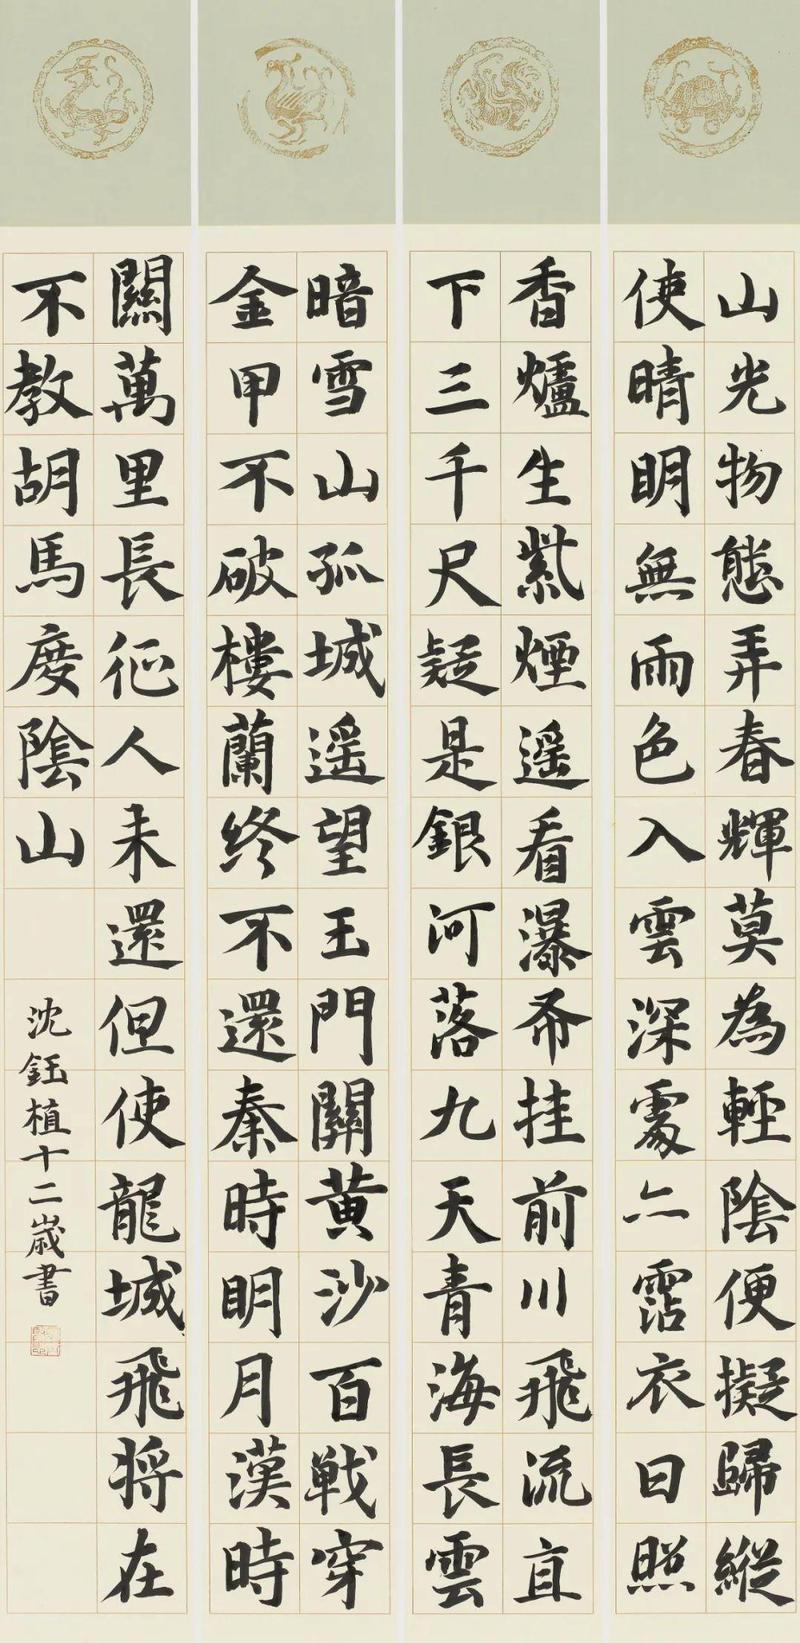 山光物態弄春輝莫為輕陰便擬歸縱
使晴明無雨色入雲深處亦霑衣日照
香爐生紫煙遥看瀑布挂前川飛流直
下三千尺疑是銀河落九天青海長雲
暗雪山孤城遥望玉門關黄沙百戰穿
金甲不破樓蘭終不還秦時明月漢時
關萬里長征人未還但使龍城飛將在
不教胡馬度陰山
沈鈺植十二歲書